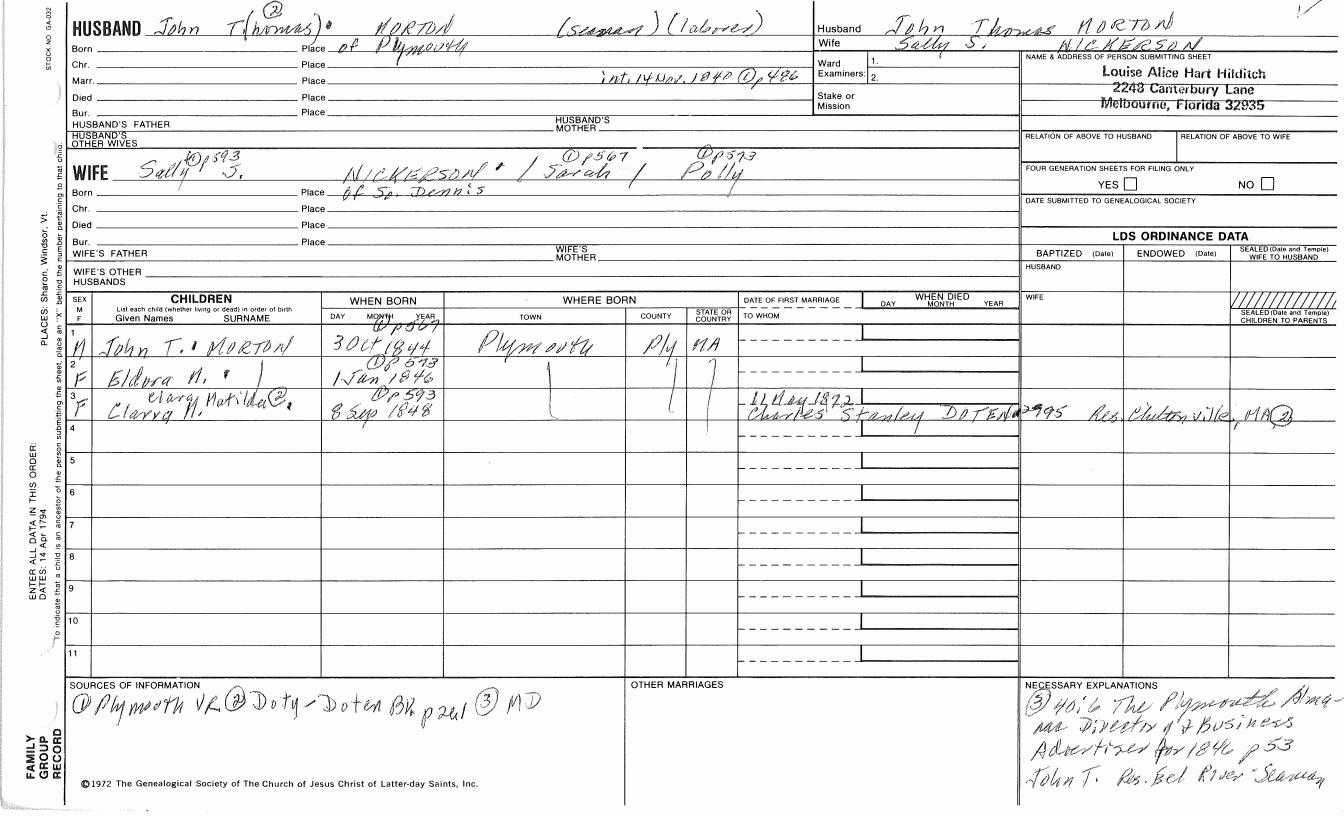 STOCK NO. GA-032
HUSBAND John T(homas) ② MORTON (seaman) (laborer)
Born Place of Plymouth
Chr. Place
Marr. Place int. 14 Nov. 1840 ① p 486
Died Place
Bur. Place
HUSBAND'S FATHER HUSBAND'S MOTHER
HUSBAND'S OTHER WIVES
Husband John Thomas MORTON
Wife Sally S. NICKERSON
Ward Examiners: 1. 2.
Stake or Mission
NAME & ADDRESS OF PERSON SUBMITTING SHEET
Louise Alice Hart Hilditch
2248 Canterbury Lane
Melbourne, Florida 32935
RELATION OF ABOVE TO HUSBAND RELATION OF ABOVE TO WIFE
FOUR GENERATION SHEETS FOR FILING ONLY
YES NO
DATE SUBMITTED TO GENEALOGICAL SOCIETY
① p593 ① p567 ① p573
WIFE Sally S. NICKERSON / Sarah / Polly
Born Place of So. Dennis
Chr. Place
Died Place
Bur. Place
WIFE'S FATHER WIFE'S MOTHER
WIFE'S OTHER HUSBANDS
LDS ORDINANCE DATA
BAPTIZED (Date) ENDOWED (Date) SEALED (Date and Temple) WIFE TO HUSBAND
HUSBAND
WIFE
SEALED (Date and Temple) CHILDREN TO PARENTS
SEX M F CHILDREN WHEN BORN WHERE BORN DATE OF FIRST MARRIAGE WHEN DIED
List each child (whether living or dead) in order of birth
Given Names SURNAME DAY MONTH YEAR TOWN COUNTY STATE OR COUNTRY TO WHOM DAY MONTH YEAR
① p567
1 M John T. MORTON 3 Oct 1844 Plymouth Ply MA
① p573
2 F Eldora M. 1 Jan 1846
Clara Matilda ② ① p593 11 May 1872
3 F Clarra M. 8 Sep 1848 Charles Stanley DOTEN 2995 Res. Chiltonville, MA ②
4
5
6
7
8
9
10
11
SOURCES OF INFORMATION
① Plymouth VR ② Doty-Doten BK ③ MD
OTHER MARRIAGES
NECESSARY EXPLANATIONS
③ 40:6 The Plymouth Alma-
nac Directory & Business
Advertiser for 1846 p 53
John T. Res. Eel River - Seaman
©1972 The Genealogical Society of The Church of Jesus Christ of Latter-day Saints, Inc.
PLACES: Sharon, Windsor, Vt.
ENTER ALL DATA IN THIS ORDER:
DATES: 14 Apr 1794
To indicate that a child is an ancestor of the person submitting the sheet, place an "X" behind the number pertaining to that child.
FAMILY GROUP RECORD